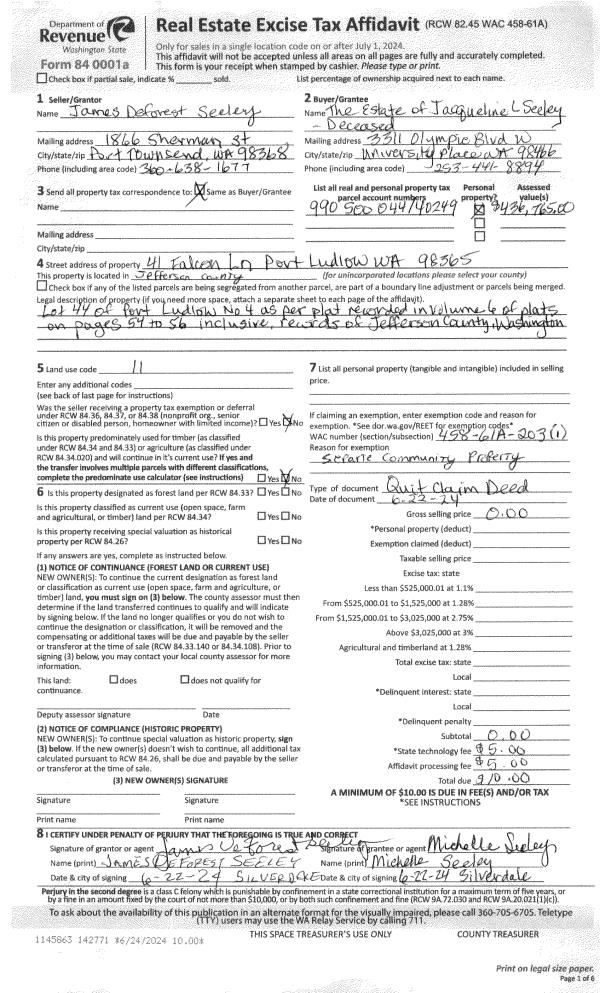 Department of
Revenue
Washington State
Form 84 0001a
Real Estate Excise Tax Affidavit (RCW 82.45 WAC 458-61A)
Only for sales in a single location code on or after July 1, 2024.
This affidavit will not be accepted unless all areas on all pages are fully and accurately completed.
This form is your receipt when stamped by cashier. Please type or print.
Check box if partial sale, indicate % sold.
List percentage of ownership acquired next to each name.
1 Seller/Grantor
Name James Deforest Seeley
Mailing address 1866 Sherman st
City/state/zip Port Townsend, WA 98368
Phone (including area code) 360-638-1677
2 Buyer/Grantee
Name The Estate of Jacqueline L Seeley
- Deceased
Mailing address 3311 Olympic Blvd W
City/state/zip University Place WA 98466
Phone (including area code) 253-441-8894
3 Send all property tax correspondence to: Same as Buyer/Grantee
Name
Mailing address
City/state/zip
List all real and personal property tax parcel account numbers
Personal property?
Assessed value(s)
990 500 044/40249
$436,765.00
4 Street address of property 41 Falcon Ln Port Ludlow WA 98365
This property is located in Jefferson County (for unincorporated locations please select your county)
Check box if any of the listed parcels are being segregated from another parcel, are part of a boundary line adjustment or parcels being merged.
Legal description of property (if you need more space, attach a separate sheet to each page of the affidavit).
Lot 44 of Port Ludlow No 4 as per plat recorded in volume 6 of plats
on pages 54 to 56 inclusive, records of Jefferson County, Washington
5 Land use code 11
Enter any additional codes
(see back of last page for instructions)
Was the seller receiving a property tax exemption or deferral
under RCW 84.36, 84.37, or 84.38 (nonprofit org., senior
citizen or disabled person, homeowner with limited income)? Yes No
Is this property predominately used for timber (as classified
under RCW 84.34 and 84.33) or agriculture (as classified under
RCW 84.34.020) and will continue in it's current use? If yes and
the transfer involves multiple parcels with different classifications,
complete the predominate use calculator (see instructions) Yes No
6 Is this property designated as forest land per RCW 84.33? Yes No
Is this property classified as current use (open space, farm
and agricultural, or timber) land per RCW 84.34? Yes No
Is this property receiving special valuation as historical
property per RCW 84.26? Yes No
If any answers are yes, complete as instructed below.
(1) NOTICE OF CONTINUANCE (FOREST LAND OR CURRENT USE)
NEW OWNER(S): To continue the current designation as forest land
or classification as current use (open space, farm and agriculture, or
timber) land, you must sign on (3) below. The county assessor must then
determine if the land transferred continues to qualify and will indicate
by signing below. If the land no longer qualifies or you do not wish to
continue the designation or classification, it will be removed and the
compensating or additional taxes will be due and payable by the seller
or transferor at the time of sale (RCW 84.33.140 or 84.34.108). Prior to
signing (3) below, you may contact your local county assessor for more
information.
This land: does does not qualify for
continuance.
Deputy assessor signature Date
(2) NOTICE OF COMPLIANCE (HISTORIC PROPERTY)
NEW OWNER(S): To continue special valuation as historic property, sign
(3) below. If the new owner(s) doesn't wish to continue, all additional tax
calculated pursuant to RCW 84.26, shall be due and payable by the seller
or transferor at the time of sale.
(3) NEW OWNER(S) SIGNATURE
Signature Signature
Print name Print name
7 List all personal property (tangible and intangible) included in selling
price.
If claiming an exemption, enter exemption code and reason for
exemption. *See dor.wa.gov/REET for exemption codes*
WAC number (section/subsection) 458-61A-203(1)
Reason for exemption
Separte Community Property
Type of document Quit Claim Deed
Date of document 6-22-24
Gross selling price 0.00
*Personal property (deduct)
Exemption claimed (deduct)
Taxable selling price
Excise tax: state
Less than $525,000.01 at 1.1%
From $525,000.01 to $1,525,000 at 1.28%
From $1,525,000.01 to $3,025,000 at 2.75%
Above $3,025,000 at 3%
Agricultural and timberland at 1.28%
Total excise tax: state
Local
*Delinquent interest: state
Local
*Delinquent penalty
Subtotal 0.00
*State technology fee $5.00
Affidavit processing fee $5.00
Total due $10.00
A MINIMUM OF $10.00 IS DUE IN FEE(S) AND/OR TAX
*SEE INSTRUCTIONS
8 I CERTIFY UNDER PENALTY OF PERJURY THAT THE FOREGOING IS TRUE AND CORRECT
Signature of grantor or agent James Deforest Seeley
Name (print) JAMES DEFOREST SEELEY
Date & city of signing 6-22-24 SILVERDALE
Signature of grantee or agent Michelle Seeley
Name (print) Michelle Seeley
Date & city of signing 6-22-24 Silverdale
Perjury in the second degree is a class C felony which is punishable by confinement in a state correctional institution for a maximum term of five years, or
by a fine in an amount fixed by the court of not more than $10,000, or by both such confinement and fine (RCW 9A.72.030 and RCW 9A.20.021(1)(c)).
To ask about the availability of this publication in an alternate format for the visually impaired, please call 360-705-6705. Teletype
(TTY) users may use the WA Relay Service by calling 711.
THIS SPACE TREASURER'S USE ONLY COUNTY TREASURER
1145863 142771 *6/24/2024 10.00*
Print on legal size paper.
Page 1 of 6